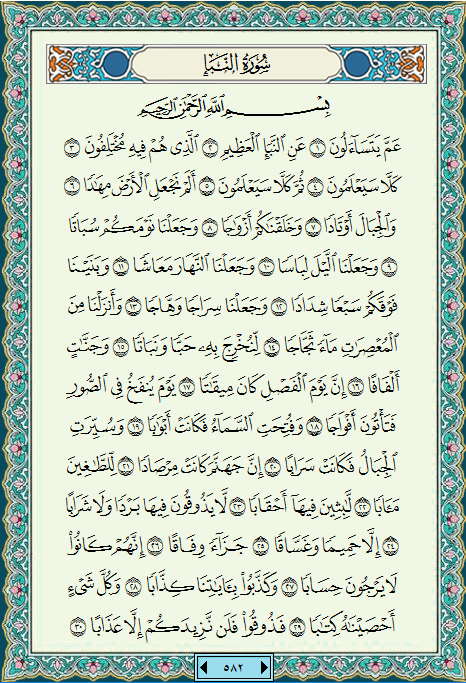 سُورَةُ النَّبَإِ
بِسْمِ اللَّهِ الرَّحْمَٰنِ الرَّحِيمِ
عَمَّ يَتَسَآءَلُونَ ١ عَنِ ٱلنَّبَإِ ٱلْعَظِيمِ ٢ ٱلَّذِى هُمْ فِيهِ مُخْتَلِفُونَ ٣
كَلَّا سَيَعْلَمُونَ ٤ ثُمَّ كَلَّا سَيَعْلَمُونَ ٥ أَلَمْ نَجْعَلِ ٱلْأَرْضَ مِهَٰدًا ٦
وَٱلْجِبَالَ أَوْتَادًا ٧ وَخَلَقْنَٰكُمْ أَزْوَٰجًا ٨ وَجَعَلْنَا نَوْمَكُمْ سُبَاتًا
٩ وَجَعَلْنَا ٱلَّيْلَ لِبَاسًا ١٠ وَجَعَلْنَا ٱلنَّهَارَ مَعَاشًا ١١ وَبَنَيْنَا
فَوْقَكُمْ سَبْعًا شِدَادًا ١٢ وَجَعَلْنَا سِرَاجًا وَهَّاجًا ١٣ وَأَنزَلْنَا مِنَ
ٱلْمُعْصِرَٰتِ مَآءً ثَجَّاجًا ١٤ لِّنُخْرِجَ بِهِۦ حَبًّا وَنَبَاتًا ١٥ وَجَنَّٰتٍ
أَلْفَافًا ١٦ إِنَّ يَوْمَ ٱلْفَصْلِ كَانَ مِيقَٰتًا ١٧ يَوْمَ يُنفَخُ فِى ٱلصُّورِ
فَتَأْتُونَ أَفْوَاجًا ١٨ وَفُتِحَتِ ٱلسَّمَآءُ فَكَانَتْ أَبْوَٰبًا ١٩ وَسُيِّرَتِ
ٱلْجِبَالُ فَكَانَتْ سَرَابًا ٢٠ إِنَّ جَهَنَّمَ كَانَتْ مِرْصَادًا ٢١ لِّلطَّٰغِينَ
مَـَٔابًا ٢٢ لَّٰبِثِينَ فِيهَآ أَحْقَابًا ٢٣ لَّا يَذُوقُونَ فِيهَا بَرْدًا وَلَا شَرَابًا
٢٤ إِلَّا حَمِيمًا وَغَسَّاقًا ٢٥ جَزَآءً وِفَاقًا ٢٦ إِنَّهُمْ كَانُوا۟
لَا يَرْجُونَ حِسَابًا ٢٧ وَكَذَّبُوا۟ بِـَٔايَٰتِنَا كِذَّابًا ٢٨ وَكُلَّ شَىْءٍ
أَحْصَيْنَٰهُ كِتَٰبًا ٢٩ فَذُوقُوا۟ فَلَن نَّزِيدَكُمْ إِلَّا عَذَابًا ٣٠
٥٨٢